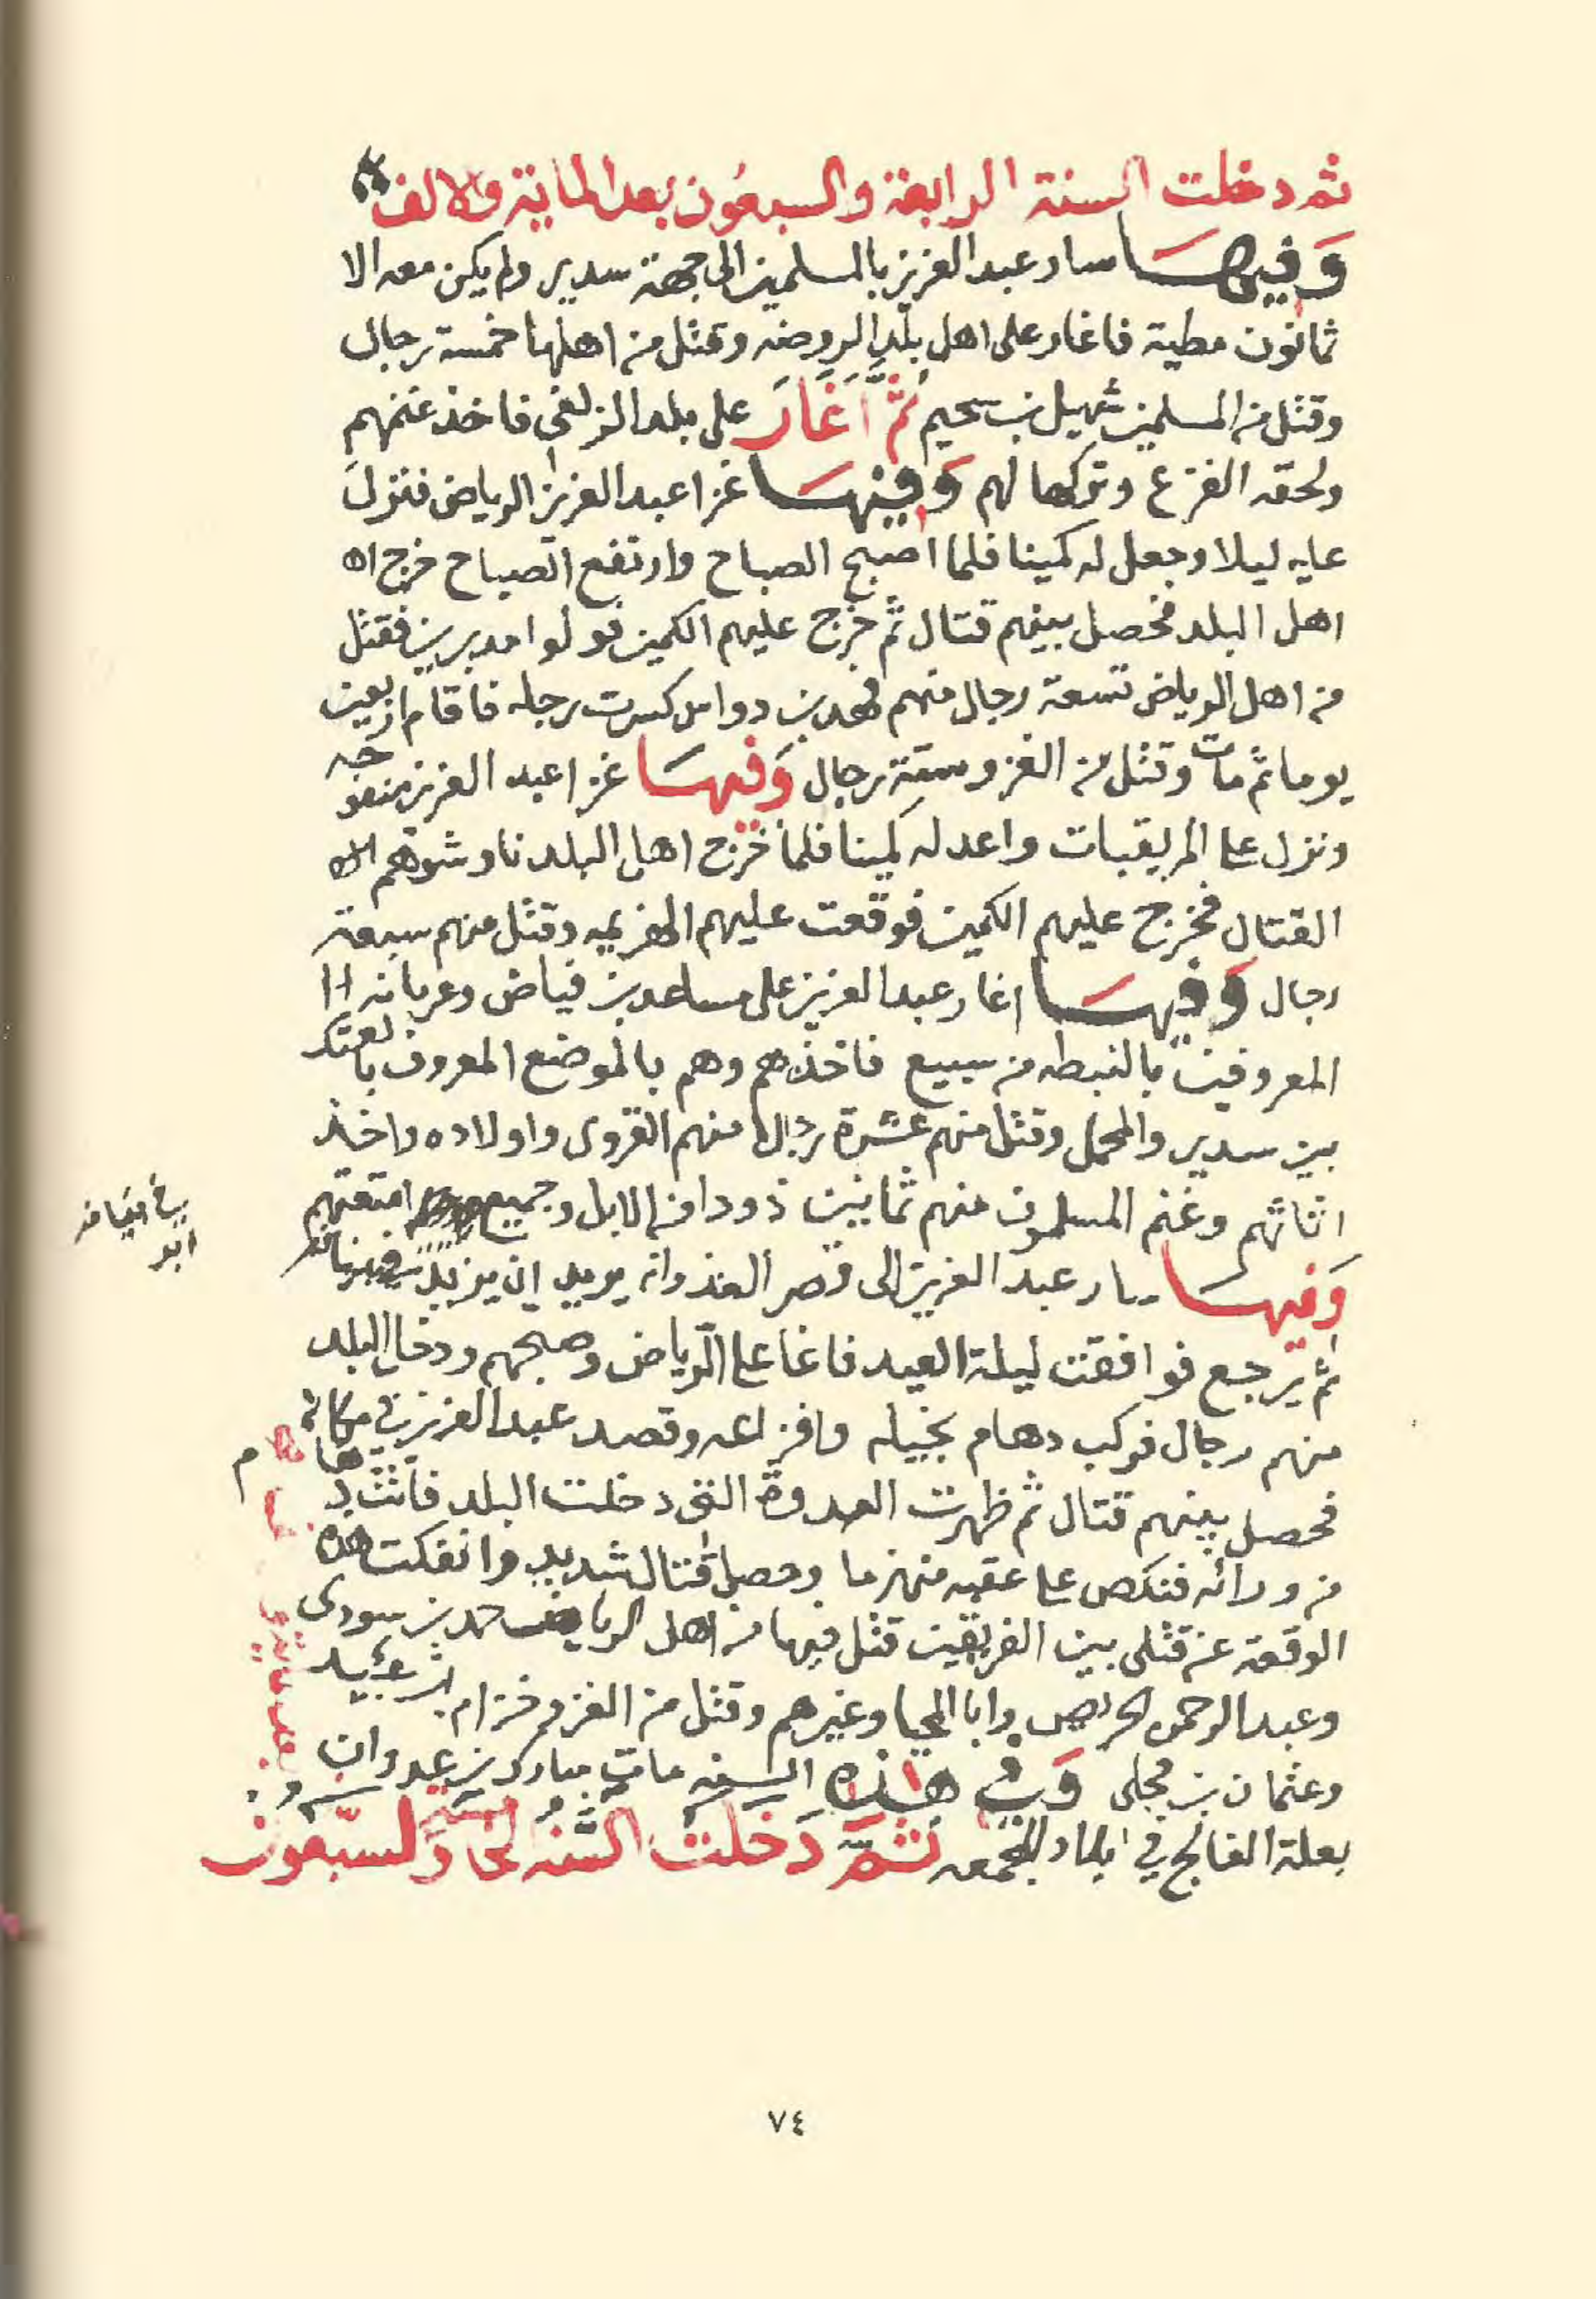 ثم دخلت السنة الرابعة والسبعون بعد المائة والالف
وفيها سار عبد العزيز بالمسلمين الى جهة سدير ولم يكن معه الا
ثمانون مطية فاغار على اهل بلد الروضه وقتل من اهلها خمسة رجال
وقتل من المسلمين شهيل بن سحيم ثم اغار على بلد الزلفي فاخذ غنمهم
ولحقه الفزع وتركها لهم وفيها غزا عبد العزيز الرياض فنزل
عليه ليلا وجعل له كمينا فلما اصبح الصباح وارتفع الصياح خرج اه
اهل البلد فحصل بينهم قتال ثم خرج عليهم الكمين فولوا مدبرين فقتل
من اهل الرياض تسعة رجال منهم فهد بن دواس كسرت رجله فاقام اربعين
يوما ثم مات وقتل من الغزو ستة رجال وفيها غزا عبد العزيز منفوحه
ونزل على المريقبات واعد له كمينا فلما خرج اهل البلد ناوشوهم
القتال فخرج عليهم الكمين فوقعت عليهم الهزيمه وقتل منهم سبعة
رجال وفيها اغار عبد العزيز على مساعد بن فياض وعربانه
المعروفين بالنبطه من سبيع فاخذهم وهم بالموضع المعروف بالعتك
بين سدير والمحمل وقتل منهم عشرة رجال منهم القروى واولاده واخذ
اثاثهم وغنم المسلمون منهم ثمانين ذودا من الابل وجميع امتعتهم
وفيها سار عبد العزيز الى قصر الغذوانه يريد ان يزيد في
ثم يرجع فوافقت ليلة العيد فاغا على الرياض وصبحهم ودخل البلد
منهم رجال فركب دهام بخيله وافزاعه وقصد عبد العزيز في مكانه
فحصل بينهم قتال ثم ظهرت العدوة التى دخلت البلد
من ورائه فنكص على عقبه منهزما وحصل قتال شديد وانفكت هذه
الوقعة عن قتلى بين الفريقين قتل فيها من اهل الرياض حمد بن سودى
وعبد الرحمن الحريص وابا المحيا وغيرهم وقتل من الغزو خزام بن عبيد
وعثمان بن مجلى وفي هذه السنه مات مبارك بن عدوان
بعلة الفالج في بلد المجمعه ثم دخلت السنه الخا والسبعون
بعد المائة
٧٤